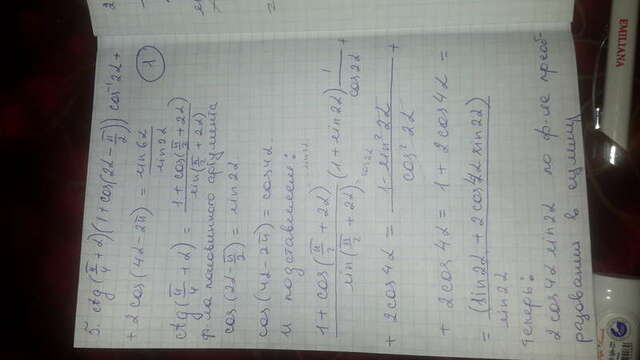 5. ctg(π/4 + α)(1 + cos(2α - π/2)) cos⁻¹ 2α +
+ 2cos(4α - 2π) = sin6α / sin2α
①
ctg(π/4 + α) = 1 + cos(π/2 + 2α) / sin(π/2 + 2α)
ф-ла половинного аргумента
cos(2α - π/2) = sin2α
cos(4α - 2π) = cos4α.
и подставляем:
1 + cos(π/2 + 2α) / sin(π/2 + 2α) · (1 + sin2α) 1 / cos2α +
+ 2cos4α = 1 - sin² 2α / cos² 2α +
+ 2cos4α = 1 + 2cos4α =
= (sin2α + 2cos4α sin2α) / sin2α
Теперь:
2cos4α sin2α по ф-ле преоб-
разования в сумму
EMILIANA